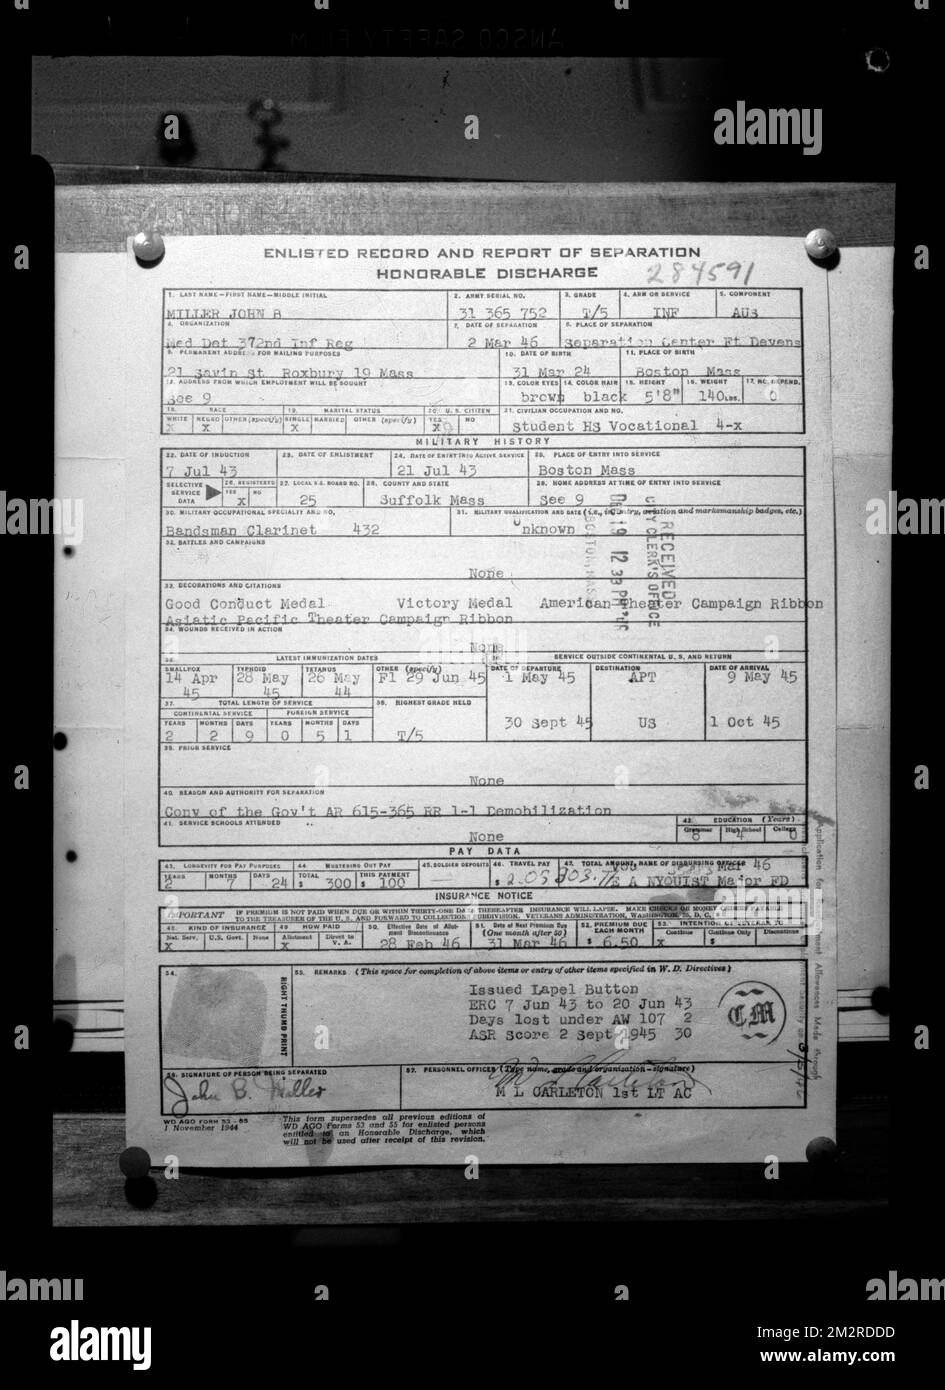 ANSCO SAFETY FILM
ENLISTED RECORD AND REPORT OF SEPARATION
HONORABLE DISCHARGE
284591
1. LAST NAME - FIRST NAME - MIDDLE INITIAL 2. ARMY SERIAL NO. 3. GRADE 4. ARM OR SERVICE 5. COMPONENT
MILLER JOHN B 31 365 752 T/5 INF AUS
6. ORGANIZATION 7. DATE OF SEPARATION 8. PLACE OF SEPARATION
Med Det 372nd Inf Reg 2 Mar 46 Separation Center Ft Devens
9. PERMANENT ADDRESS FOR MAILING PURPOSES 10. DATE OF BIRTH 11. PLACE OF BIRTH
21 Savin St Roxbury 19 Mass 31 Mar 24 Boston Mass
12. ADDRESS FROM WHICH EMPLOYMENT WILL BE SOUGHT 13. COLOR EYES 14. COLOR HAIR 15. HEIGHT 16. WEIGHT 17. NO. DEPEND.
See 9 brown black 5'8" 140 LBS. 0
18. RACE 19. MARITAL STATUS 20. U.S. CITIZEN 21. CIVILIAN OCCUPATION AND NO.
WHITE NEGRO OTHER (specify) SINGLE MARRIED OTHER (specify) YES NO
X X X X Student HS Vocational 4-x
MILITARY HISTORY
22. DATE OF INDUCTION 23. DATE OF ENLISTMENT 24. DATE OF ENTRY INTO ACTIVE SERVICE 25. PLACE OF ENTRY INTO SERVICE
7 Jul 43 21 Jul 43 Boston Mass
SELECTIVE SERVICE DATA 26. REGISTERED YES NO 27. LOCAL S.S. BOARD NO. 28. COUNTY AND STATE 29. HOME ADDRESS AT TIME OF ENTRY INTO SERVICE
X 25 Suffolk Mass See 9
30. MILITARY OCCUPATIONAL SPECIALTY AND NO. 31. MILITARY QUALIFICATION AND DATE (i.e., infantry, aviation and marksmanship badges, etc.)
Bandsman Clarinet 432 Unknown
RECEIVED
CITY CLERK'S OFFICE
BOSTON, MASS.
32. BATTLES AND CAMPAIGNS
None
33. DECORATIONS AND CITATIONS
Good Conduct Medal Victory Medal American Theater Campaign Ribbon
Asiatic Pacific Theater Campaign Ribbon
34. WOUNDS RECEIVED IN ACTION
None
35. LATEST IMMUNIZATION DATES 36. SERVICE OUTSIDE CONTINENTAL U.S. AND RETURN
SMALLPOX TYPHOID TETANUS OTHER (specify) DATE OF DEPARTURE DESTINATION DATE OF ARRIVAL
14 Apr 28 May 26 May Fl 29 Jun 45 1 May 45 APT 9 May 45
45 45 44
37. TOTAL LENGTH OF SERVICE 38. HIGHEST GRADE HELD
CONTINENTAL SERVICE FOREIGN SERVICE
YEARS MONTHS DAYS YEARS MONTHS DAYS 30 Sept 45 US 1 Oct 45
2 2 9 0 5 1 T/5
39. PRIOR SERVICE
None
40. REASON AND AUTHORITY FOR SEPARATION
Conv of the Gov't AR 615-365 RR 1-1 Demobilization
41. SERVICE SCHOOLS ATTENDED 42. EDUCATION (Years)
Grammar High School College
None 8 4 0
PAY DATA
43. LONGEVITY FOR PAY PURPOSES 44. MUSTERING OUT PAY 45. SOLDIER DEPOSITS 46. TRAVEL PAY 47. TOTAL AMOUNT, NAME OF DISBURSING OFFICER
YEARS MONTHS DAYS TOTAL THIS PAYMENT
2 7 24 $ 300 $ 100 — $ E A NYQUIST Major FD
INSURANCE NOTICE
IMPORTANT IF PREMIUM IS NOT PAID WHEN DUE OR WITHIN THIRTY-ONE DAYS THEREAFTER INSURANCE WILL LAPSE. MAKE CHECKS OR MONEY ORDERS PAYABLE
TO THE TREASURER OF THE U. S. AND FORWARD TO COLLECTIONS SUBDIVISION, VETERANS ADMINISTRATION, WASHINGTON 25, D. C.
48. KIND OF INSURANCE 49. HOW PAID 50. Effective Date of Allotment Discontinuance 51. Date of Next Premium Due (One month after 50) 52. PREMIUM DUE EACH MONTH 53. INTENTION OF VETERAN TO
Nat. Serv. U.S. Govt. None Allotment Direct to V. A. Continue Continue Only Discontinue
X X 28 Feb 46 31 Mar 46 $ 6.50 X $
54. 55. REMARKS (This space for completion of above items or entry of other items specified in W. D. Directives)
RIGHT THUMB PRINT
Issued Lapel Button
ERC 7 Jun 43 to 20 Jun 43
Days lost under AW 107 2
ASR Score 2 Sept 1945 30
CM
56. SIGNATURE OF PERSON BEING SEPARATED 57. PERSONNEL OFFICER (Type name, grade and organization - signature)
John B. Miller M L Carleton
M L CARLETON 1st LT AC
WD AGO FORM 53 - 55
1 November 1944
This form supersedes all previous editions of
WD AGO Forms 53 and 55 for enlisted persons
entitled to an Honorable Discharge, which
will not be used after receipt of this revision.
alamy
Image ID: 2M2RDDD
www.alamy.com